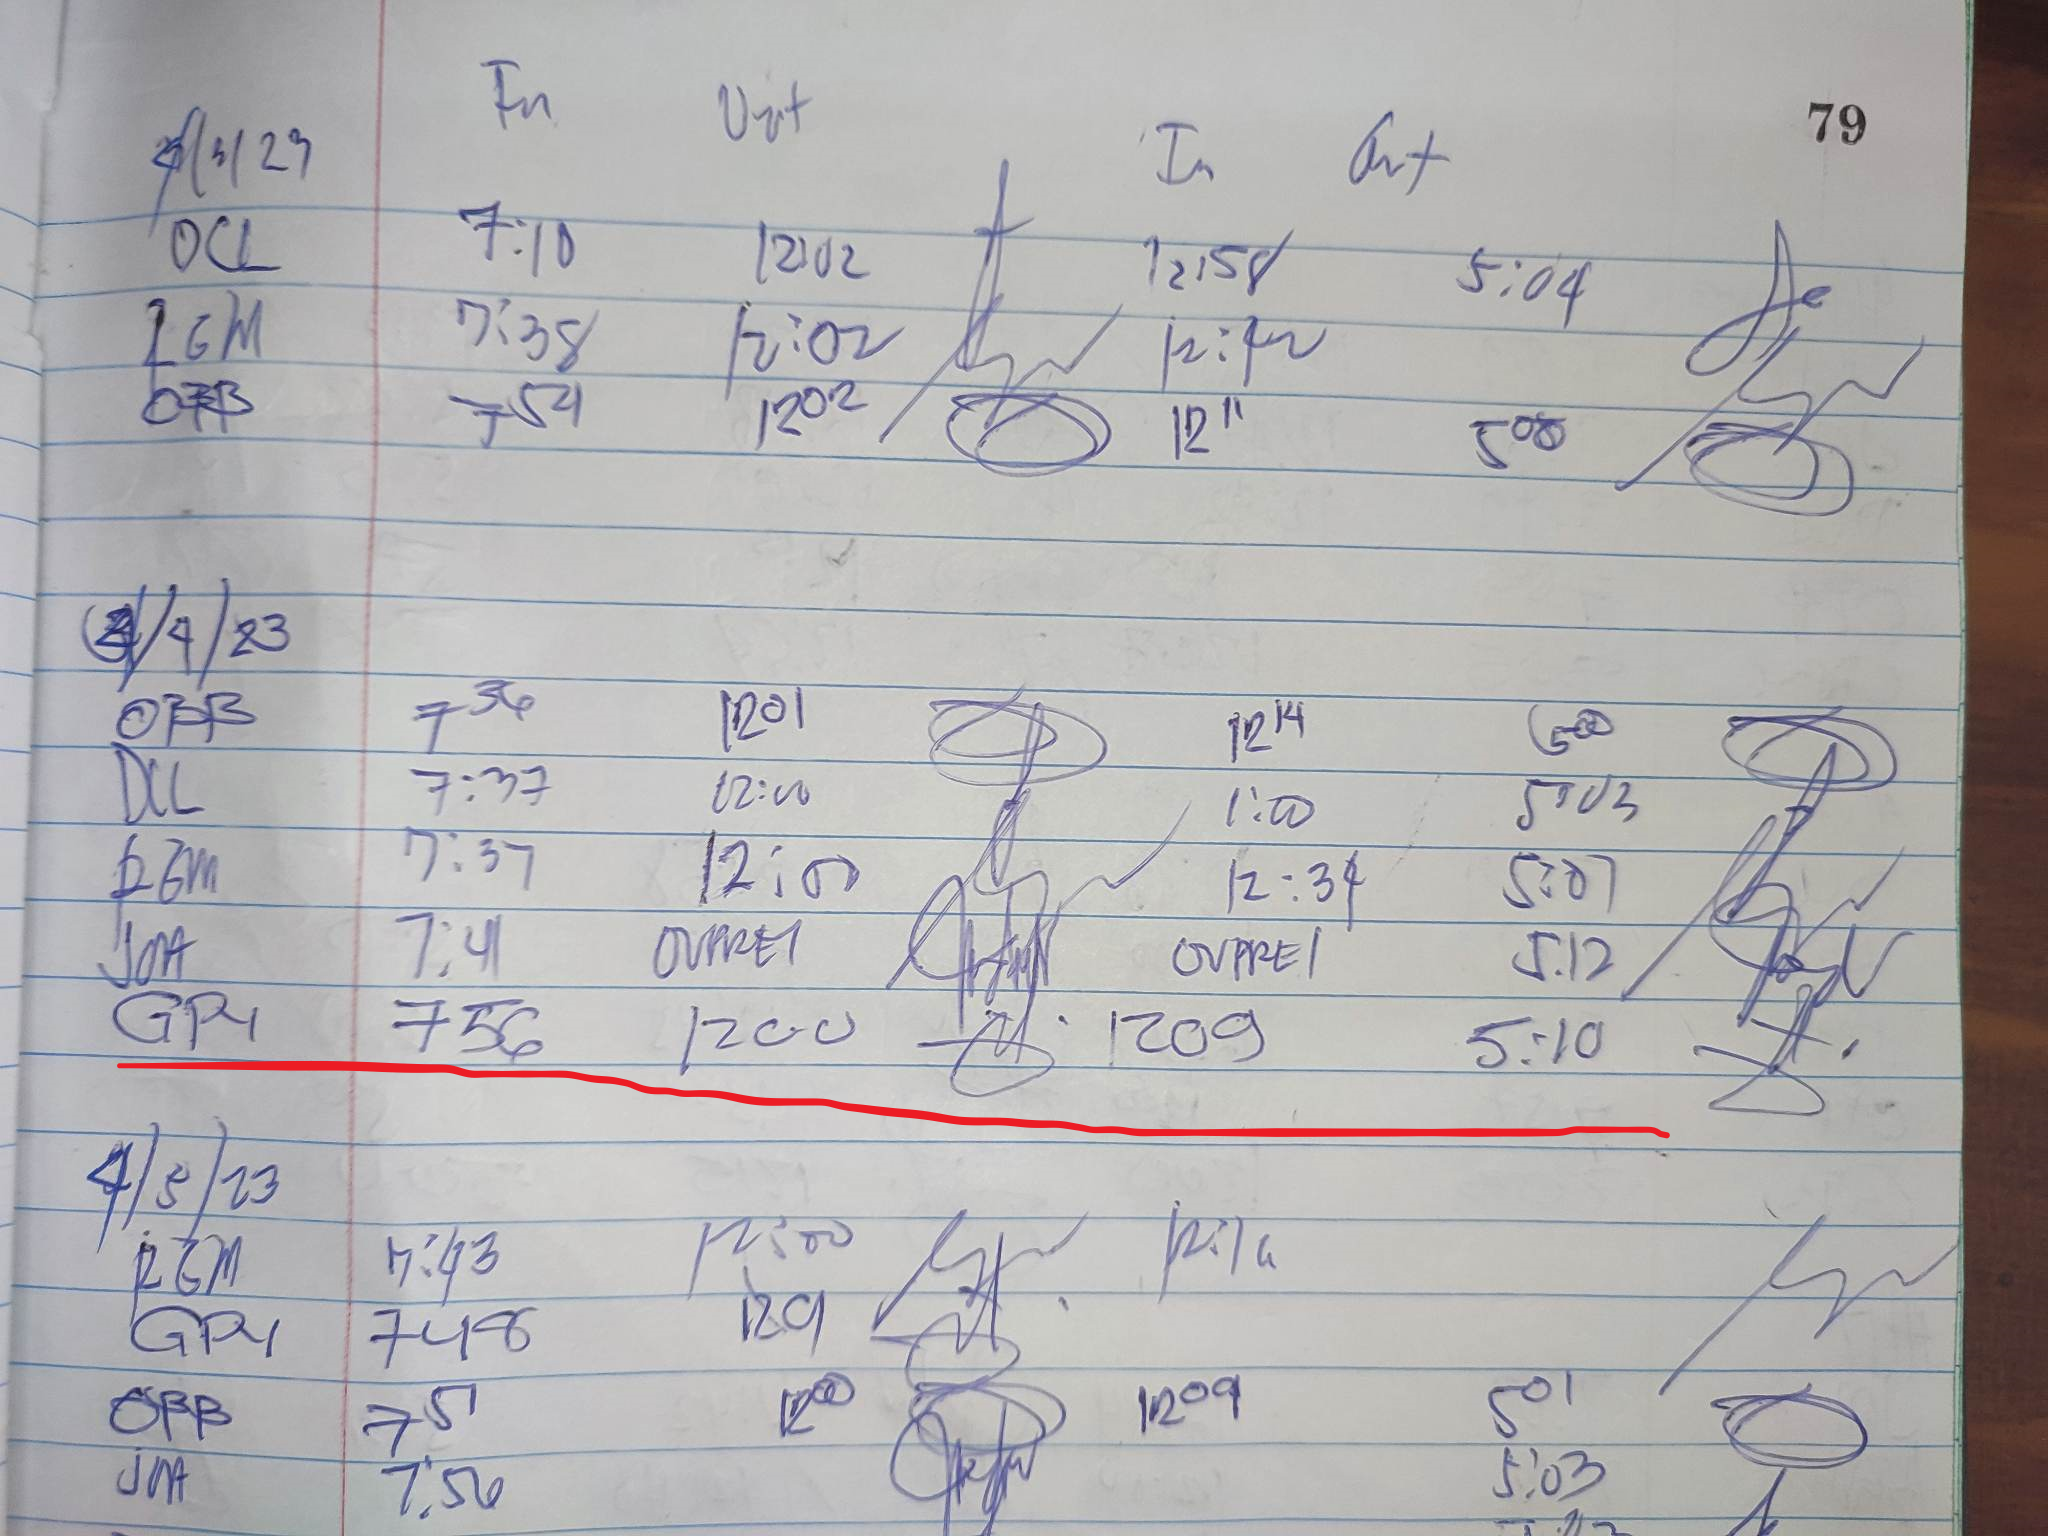 79
In Out In Out
4/3/23
DCL 7:10 12:02 12:58 5:04
REM 7:38 12:02 12:42
OBB 7 54 12 02 12 11 5 00
4/4/23
OBB 7 36 12 01 12 14 5 00
DCL 7:37 12:00 1:00 5:03
REM 7:37 12:00 12:34 5:07
JOA 7:41 OVPREI OVPREI 5:12
GPY 756 1200 1209 5:10
4/5/23
REM 7:43 12:00
GPY 748 1201
OBB 7 51 12 00 12 09 5 01
JOA 7:56 5:03